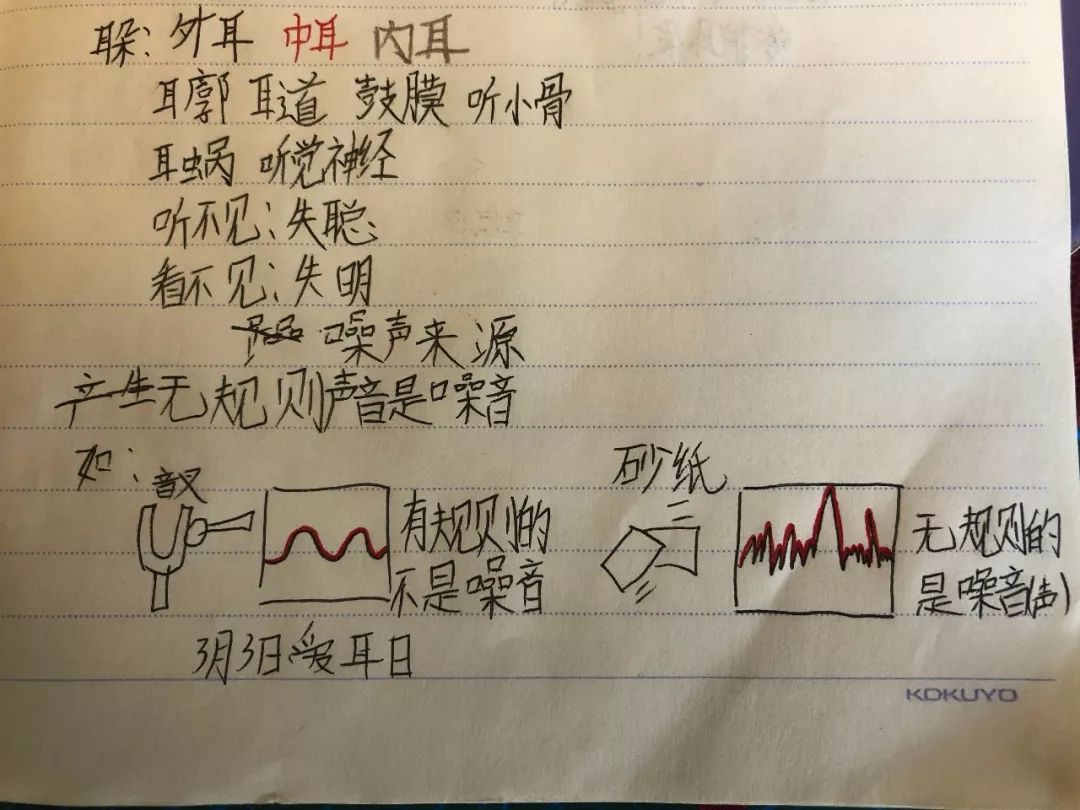 耳朵：外耳 中耳 内耳
耳廓 耳道 鼓膜 听小骨
耳蜗 听觉神经
听不见：失聪
看不见：失明
噪声来源
产生无规则声音是噪音
如：
音叉
有规则的
不是噪音
砂纸
无规则的
是噪音(声)
3月3日爱耳日
KOKUYO